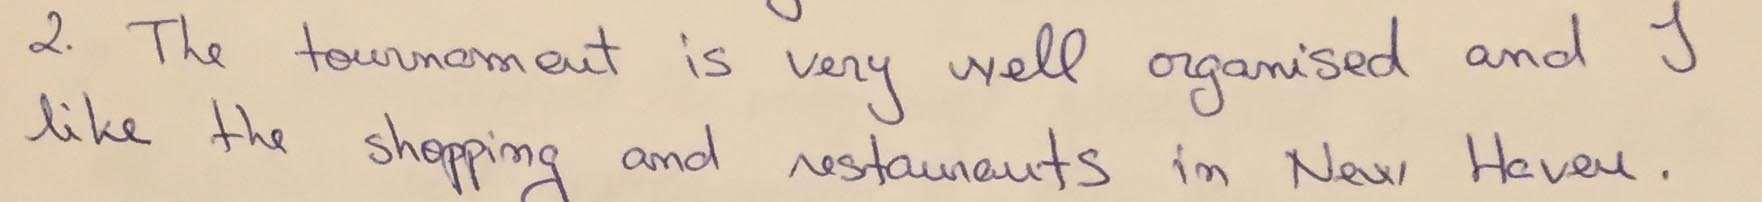 2. The tournament is very well organised and I
like the shopping and restaurants in New Haven.